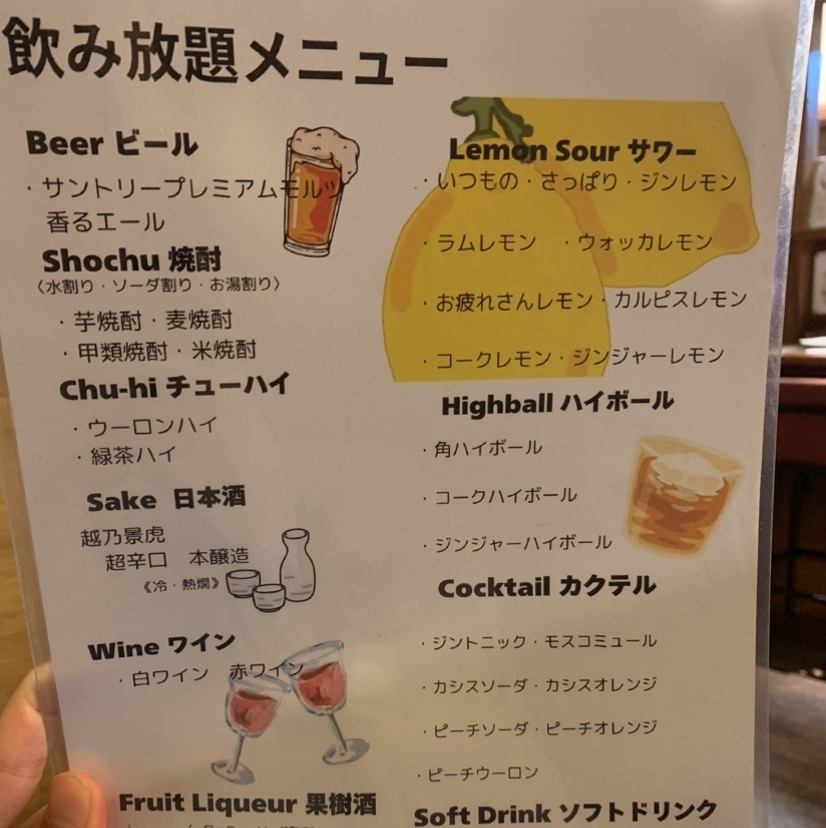 飲み放題メニュー
Beer ビール
・サントリープレミアムモルツ
香るエール
Shochu 焼酎
〈水割り・ソーダ割り・お湯割り〉
・芋焼酎・麦焼酎
・甲類焼酎・米焼酎
Chu-hi チューハイ
・ウーロンハイ
・緑茶ハイ
Sake 日本酒
越乃景虎
超辛口 本醸造
《冷・熱燗》
Wine ワイン
・白ワイン 赤ワイン
Fruit Liqueur 果樹酒
Lemon Sour サワー
・いつもの・さっぱり・ジンレモン
・ラムレモン ・ウォッカレモン
・お疲れさんレモン・カルピスレモン
・コークレモン・ジンジャーレモン
Highball ハイボール
・角ハイボール
・コークハイボール
・ジンジャーハイボール
Cocktail カクテル
・ジントニック・モスコミュール
・カシスソーダ・カシスオレンジ
・ピーチソーダ・ピーチオレンジ
・ピーチウーロン
Soft Drink ソフトドリンク